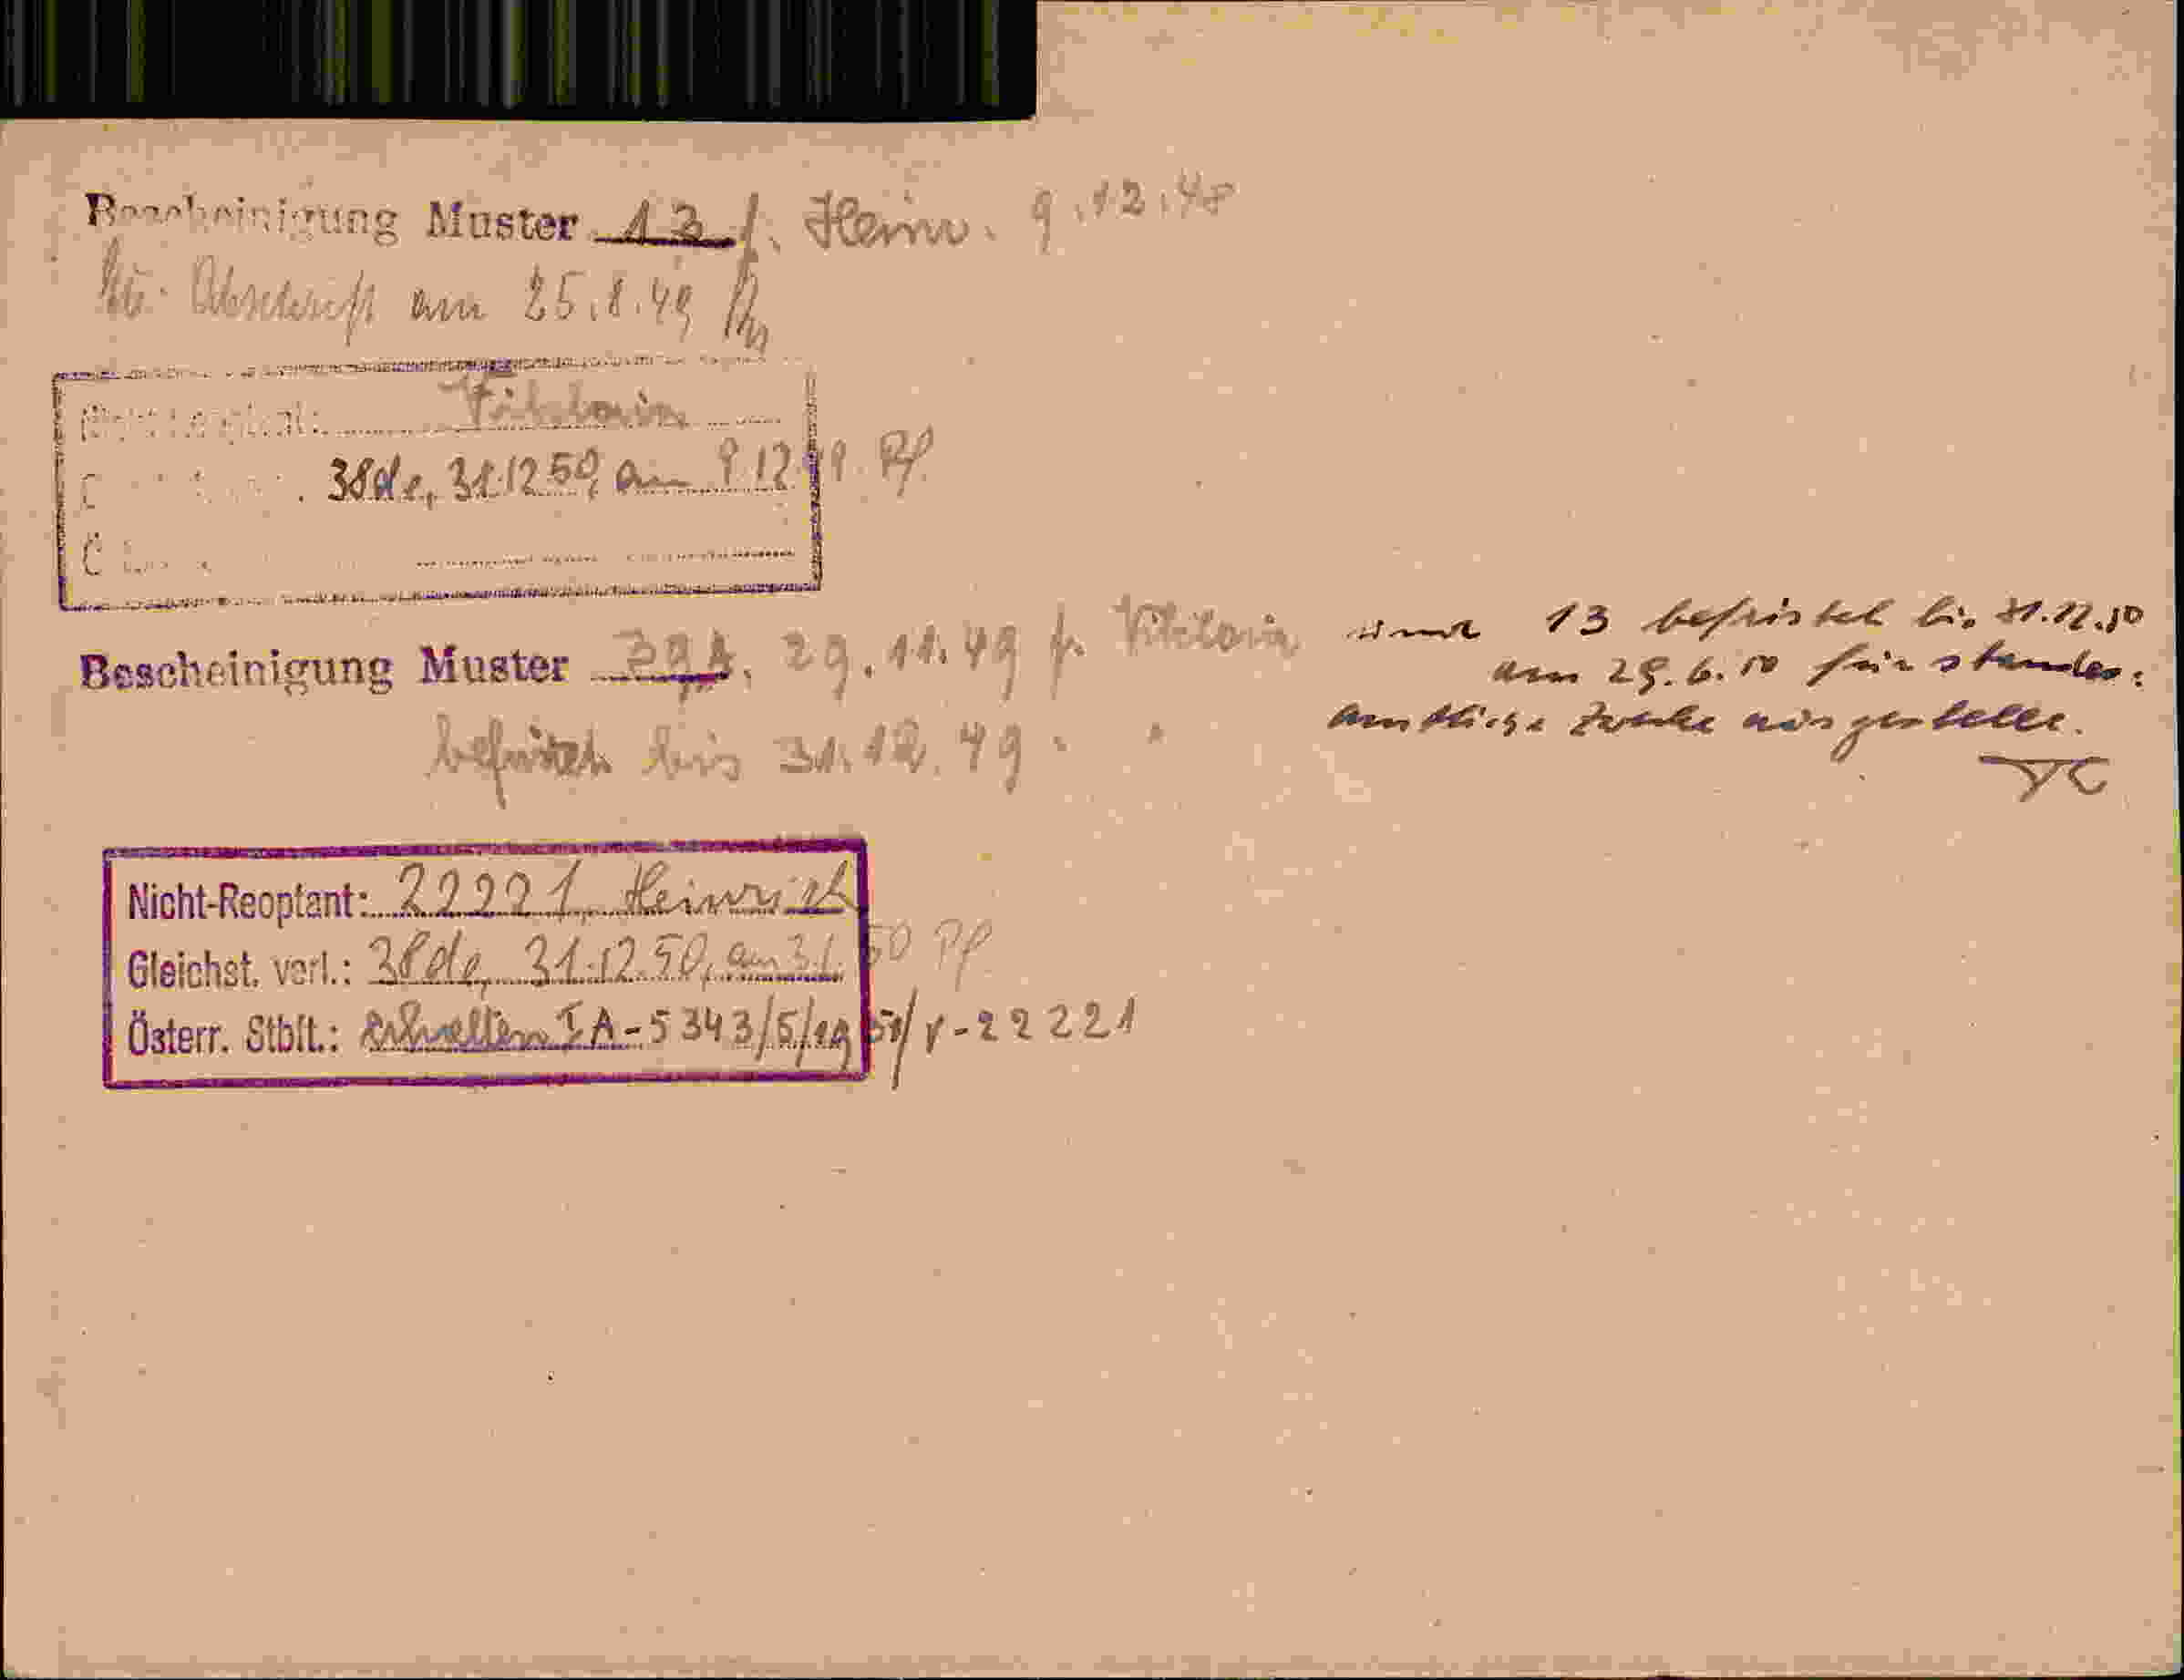 Bescheinigung Muster 13 f. Heinr. 9.12.48
Abschrift am 25.8.49
Nicht-Reoptant: Viktoria
38de, 31.12.50, am 9.12.49. Pf.
Bescheinigung Muster 39A, 29.11.49 f. Viktoria
befristet bis 31.12.49.
und 13 befristet bis 31.12.50
am 29.6.50 für standes:
amtliche Zwecke ausgestellt.
Nicht-Reoptant: 22221, Heinrich
Gleichst. verl.: 38de, 31.12.50, am 3.1.50 Pf.
Österr. Stbft.: erhalten IA-5343/5/1951/V-22221